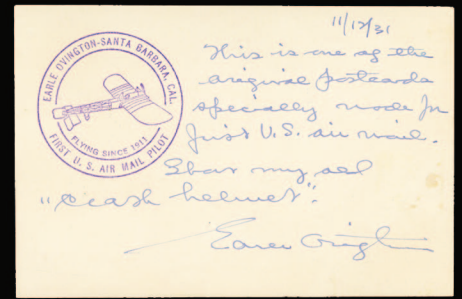 11/12/31
EARLE OVINGTON-SANTA BARBARA, CAL.
FLYING SINCE 1911
FIRST U.S. AIR MAIL PILOT
This is one of the
original postcards
specially made for
first U.S. air mail.
my old
"crash helmet".
Earle Ovington